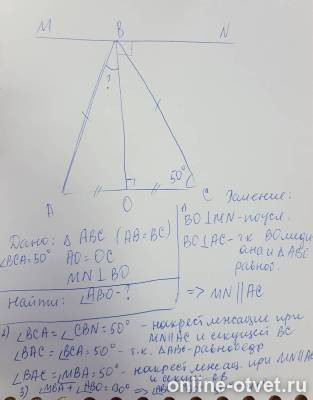 M B N
?
50°
A O C
Дано: △ ABC (AB=BC)
∠BCA=50° AO=OC
MN⊥BO
Найти: ∠ABO-?
BO⊥MN-по усл.
BO⊥AC-т.к. BO меди
ана и △ABC
равноб.
=> MN||AC
2) ∠BCA=∠CBN=50° - накрест лежащие при
MN||AC и секущей BC
∠BAC=∠BCA=50° - т.к. △ABC-равнобедр
∠BAC=∠MBA=50° - накрест лежащ. при MN||AC
и секущ. AB
3) ∠MBA+∠ABO=90° =>
online-otvet.ru